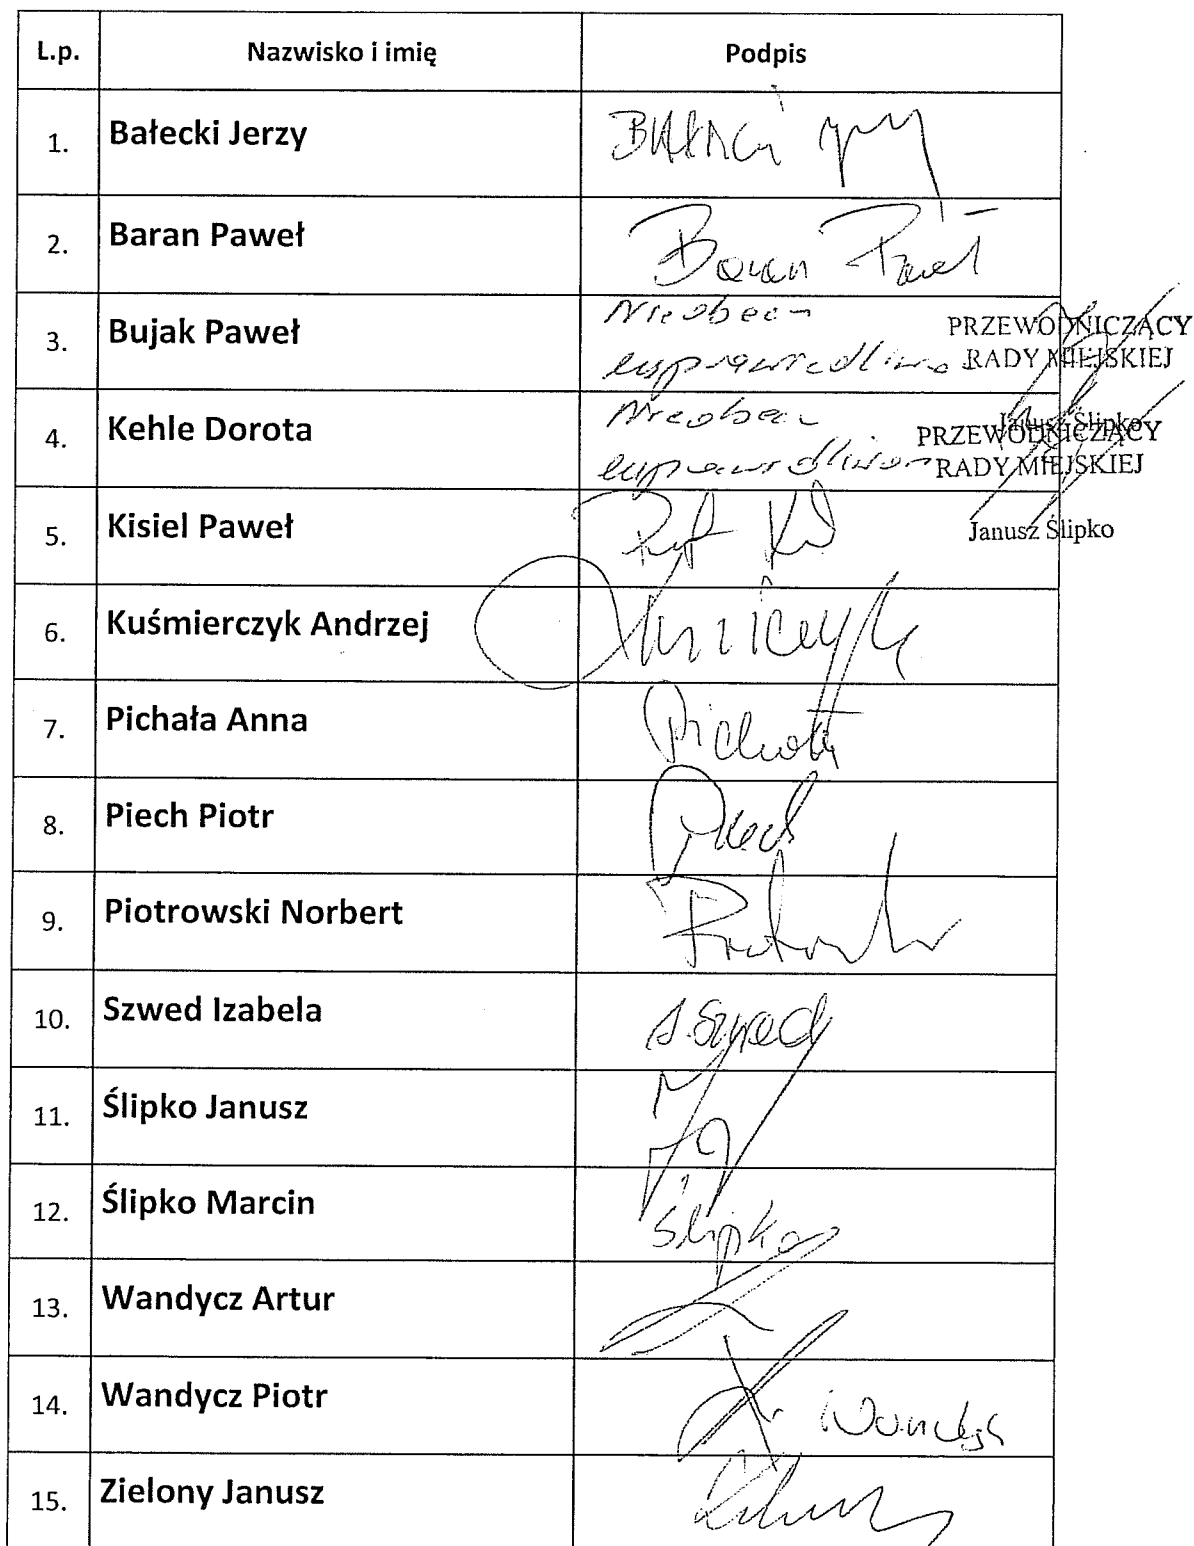 L.p. Nazwisko i imię Podpis
1. Bałecki Jerzy
2. Baran Paweł Baran Paweł
3. Bujak Paweł Nieobecn
usprawiedliwion
PRZEWODNICZĄCY
RADY MIEJSKIEJ
Janusz Ślipko
4. Kehle Dorota Nieobecn
usprawiedliwion
PRZEWODNICZĄCY
RADY MIEJSKIEJ
Janusz Ślipko
5. Kisiel Paweł
6. Kuśmierczyk Andrzej
7. Pichała Anna Pichała
8. Piech Piotr Piech
9. Piotrowski Norbert
10. Szwed Izabela I. Szwed
11. Ślipko Janusz
12. Ślipko Marcin Ślipko
13. Wandycz Artur
14. Wandycz Piotr Wandycz
15. Zielony Janusz